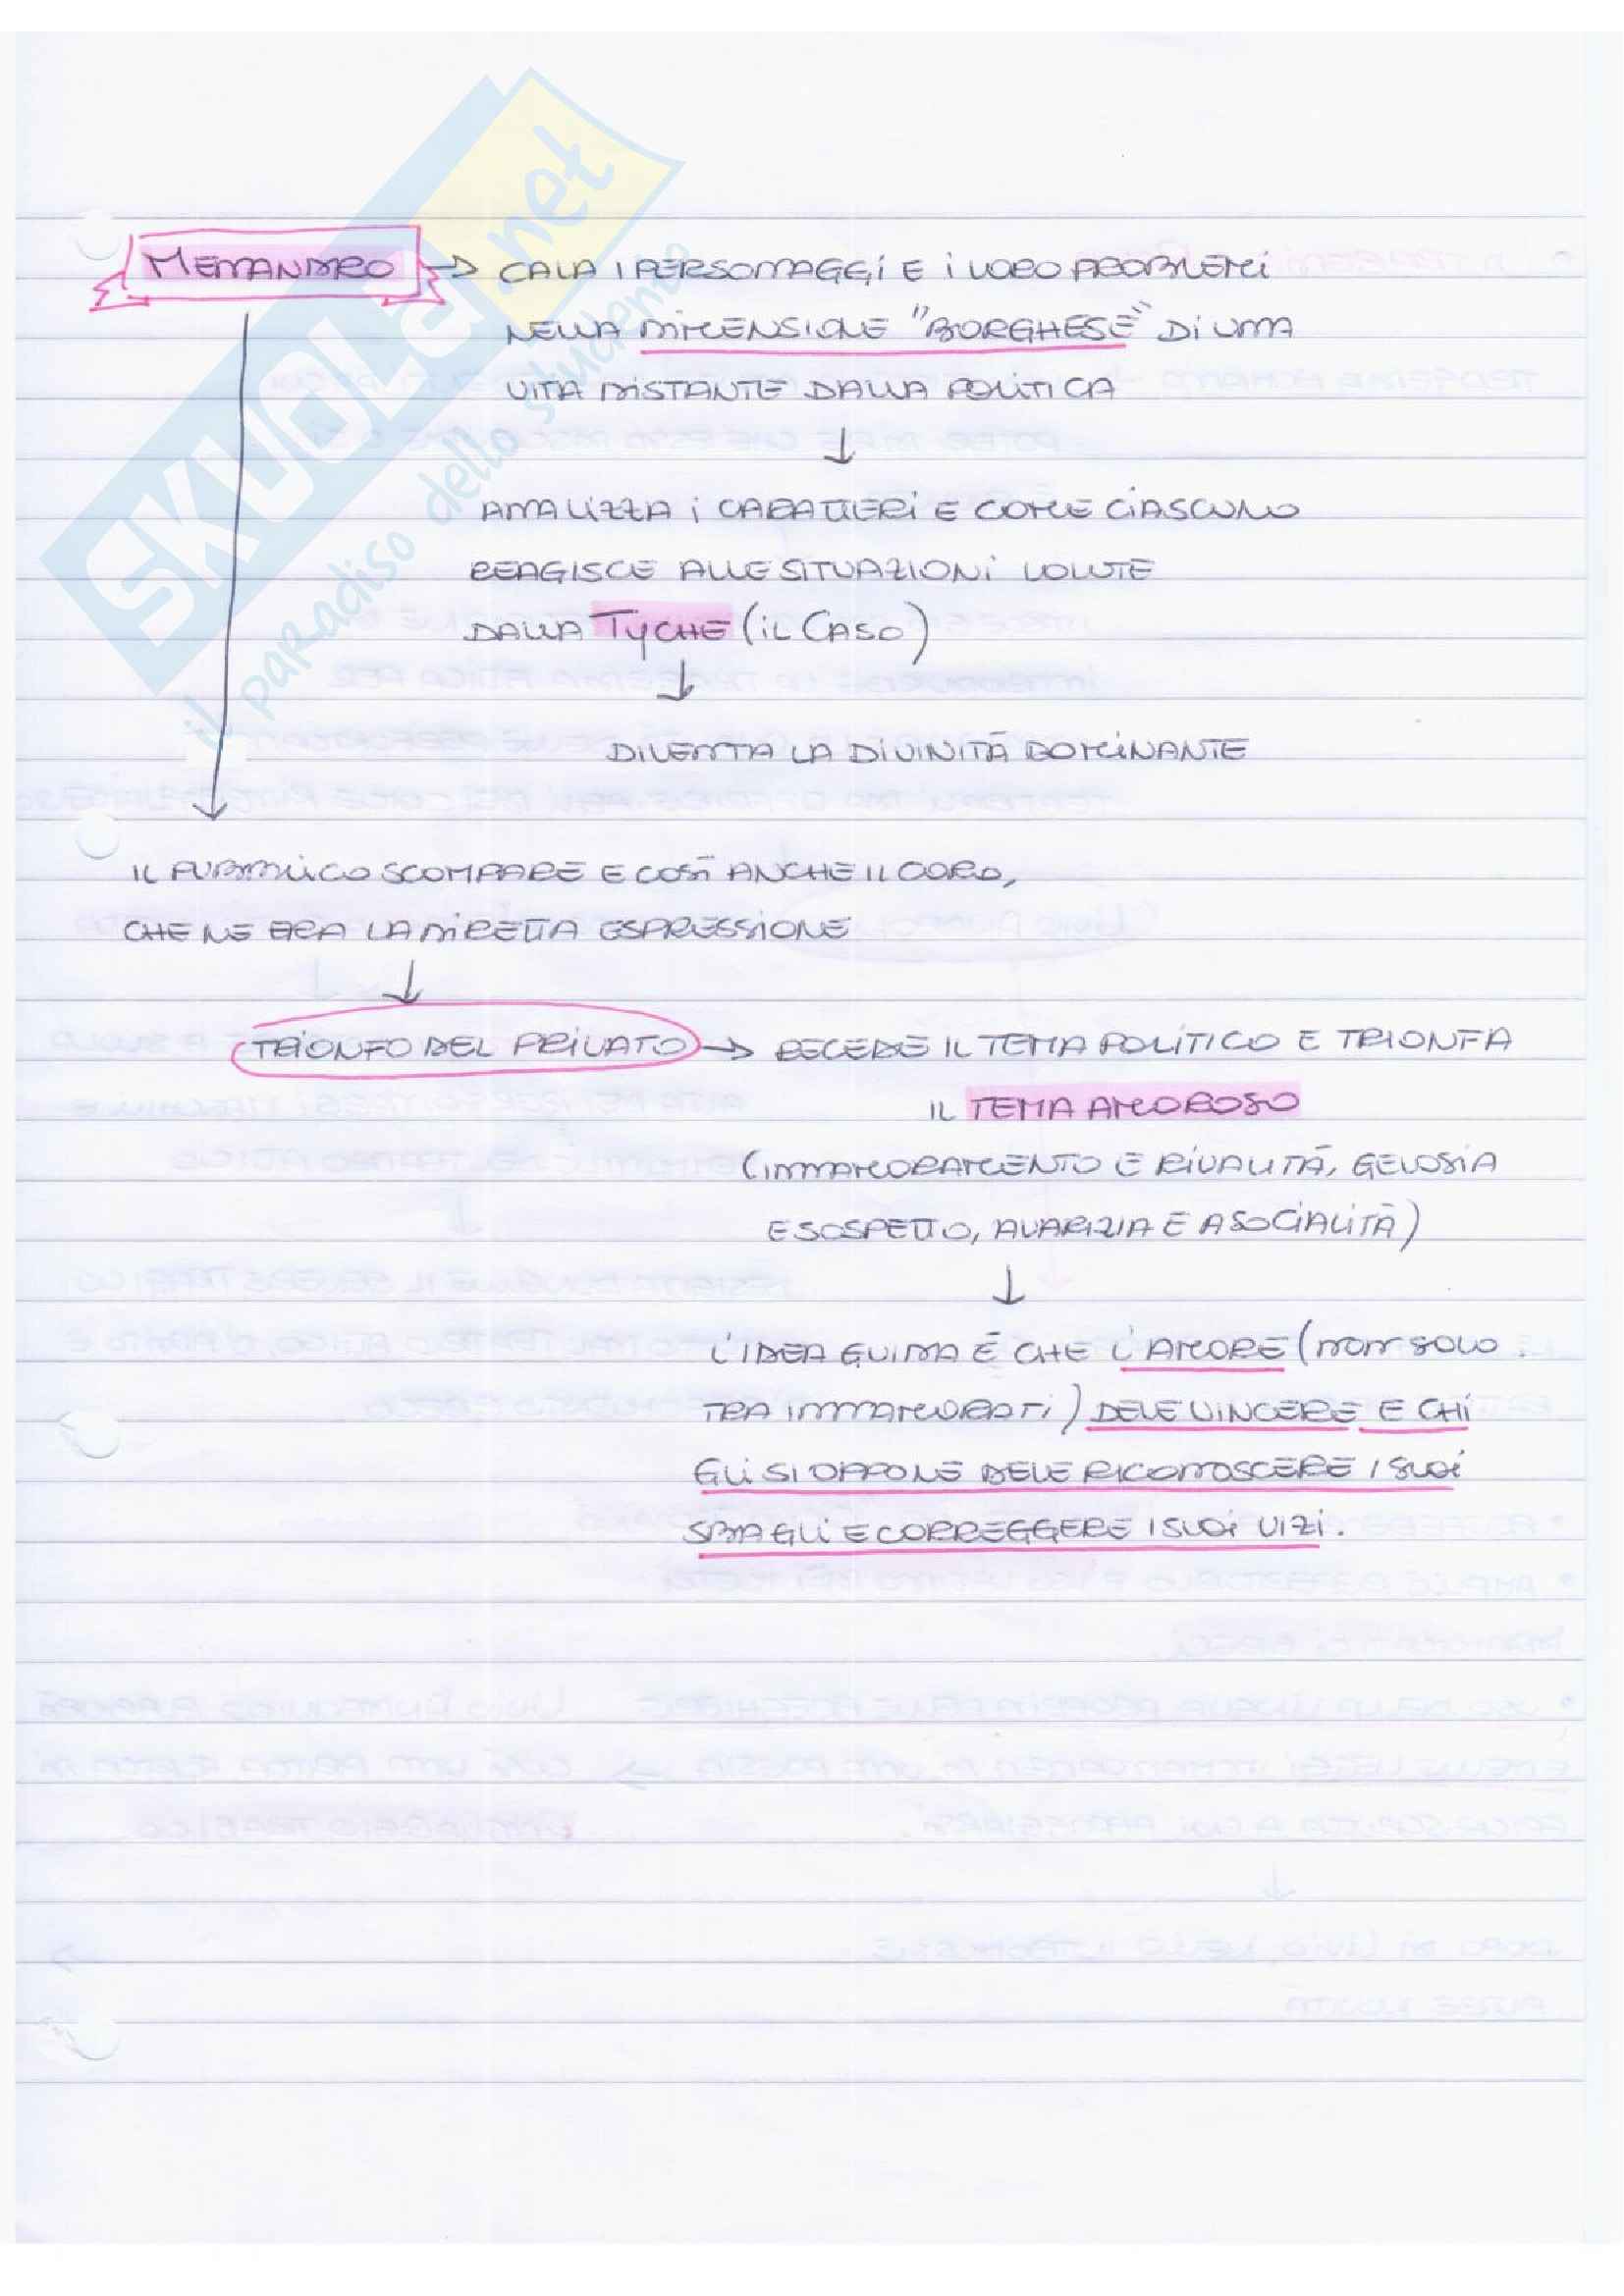 SKUOLA.net
il paradiso dello studente
MENANDRO → CALA I PERSONAGGI E I LORO PROBLEMI
NELLA DIMENSIONE "BORGHESE" DI UNA
VITA DISTANTE DALLA POLITICA
↓
ANALIZZA I CARATTERI E COME CIASCUNO
REAGISCE ALLE SITUAZIONI VOLUTE
DALLA TYCHE (IL CASO)
↓
DIVENTA LA DIVINITÀ DOMINANTE
IL PUBBLICO SCOMPARE E COSÌ ANCHE IL CORO,
CHE NE ERA LA DIRETTA ESPRESSIONE
↓
TRIONFO DEL PRIVATO → RECEDE IL TEMA POLITICO E TRIONFA
IL TEMA AMOROSO
(INNAMORAMENTO E RIVALITÀ, GELOSIA
E SOSPETTO, AVARIZIA E ASOCIALITÀ)
↓
L'IDEA GUIDA È CHE L'AMORE (NON SOLO
TRA INNAMORATI) DEVE VINCERE E CHI
GLI SI OPPONE DEVE RICONOSCERE I SUOI
SBAGLI E CORREGGERE I SUOI VIZI.